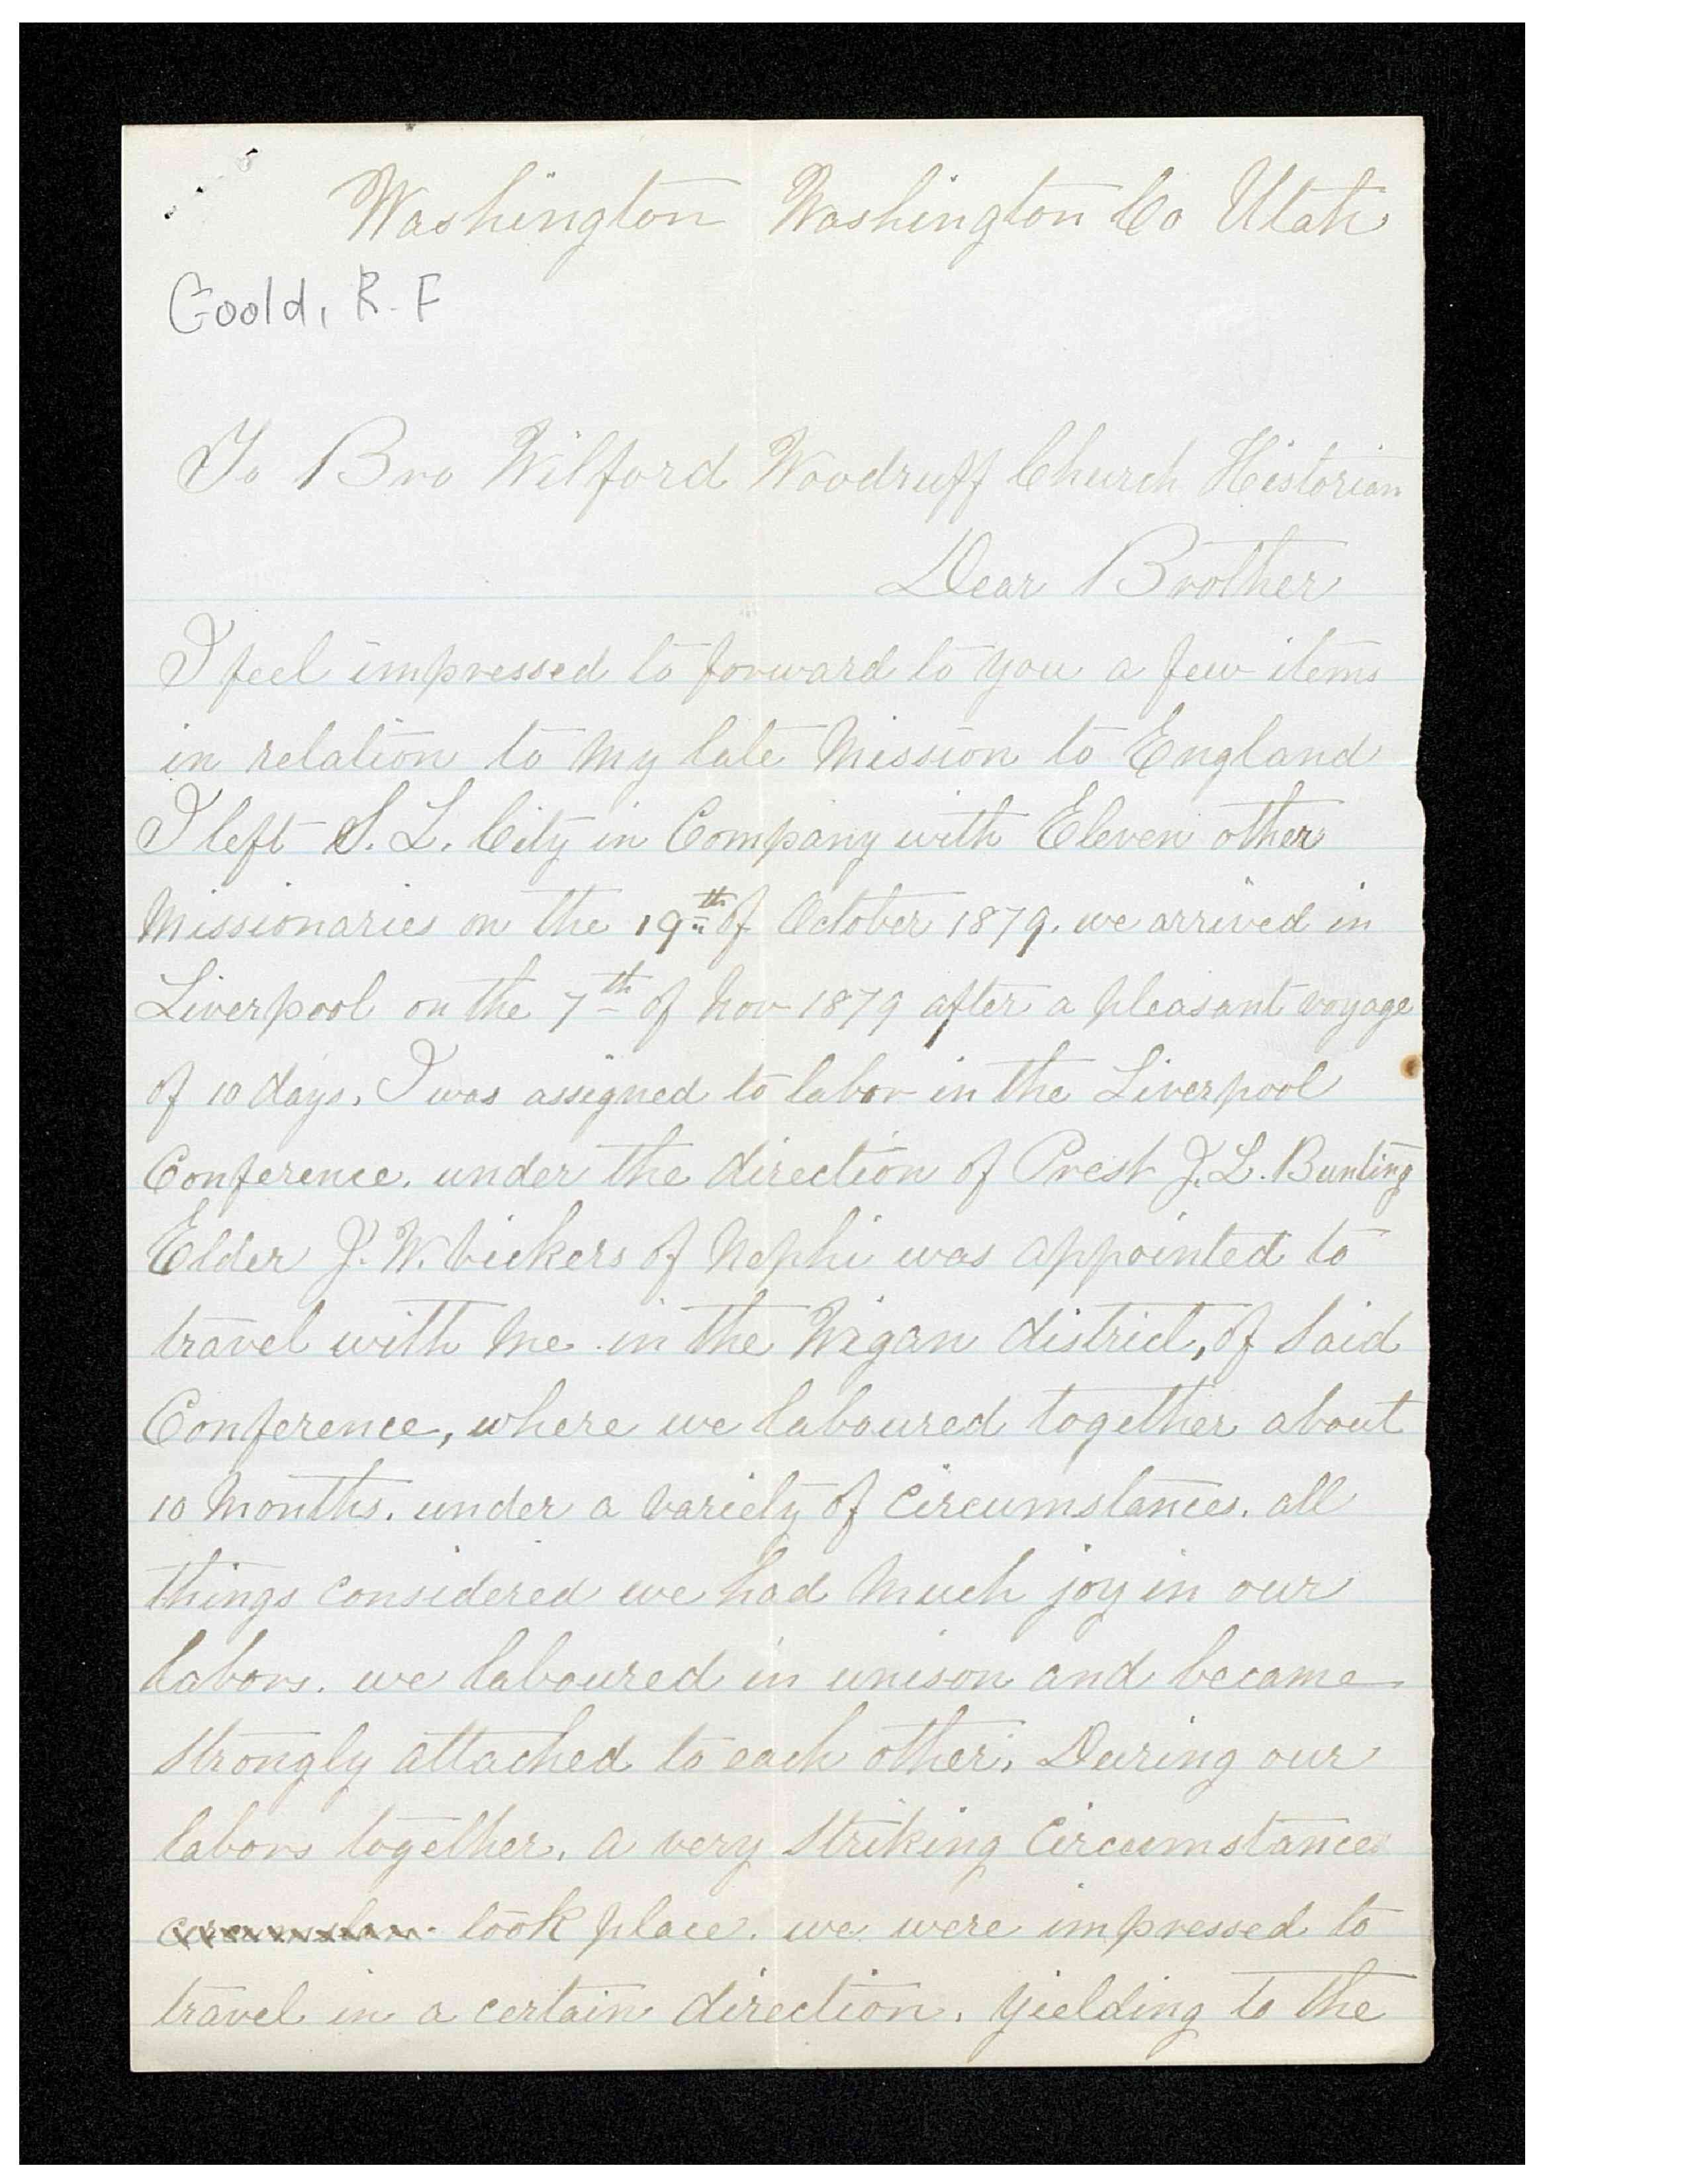 Washington Washington Co Utah
Goold, R. F
To Bro Wilford Woodruff Church Historian
Dear Brother
I feel impressed to forward to you a few items
in relation to my late Mission to England
I left S. L. City in Company with Eleven other
Missionaries on the 19th of October 1879. we arrived in
Liverpool on the 7th of Nov 1879 after a pleasant voyage
of 10 days. I was assigned to labor in the Liverpool
Conference. under the direction of Prest J. L. Bunting
Elder J. W. Vickers of Nephi was appointed to
travel with me in the Wigan district, of Said
Conference, where we laboured together about
10 Months. under a variety of Circumstances. all
things considered we had much joy in our
labors. we laboured in unison and became
strongly attached to each other. During our
labors together. a very Striking Circumstance
circumstan took place. we were impressed to
travel in a certain direction. yielding to the